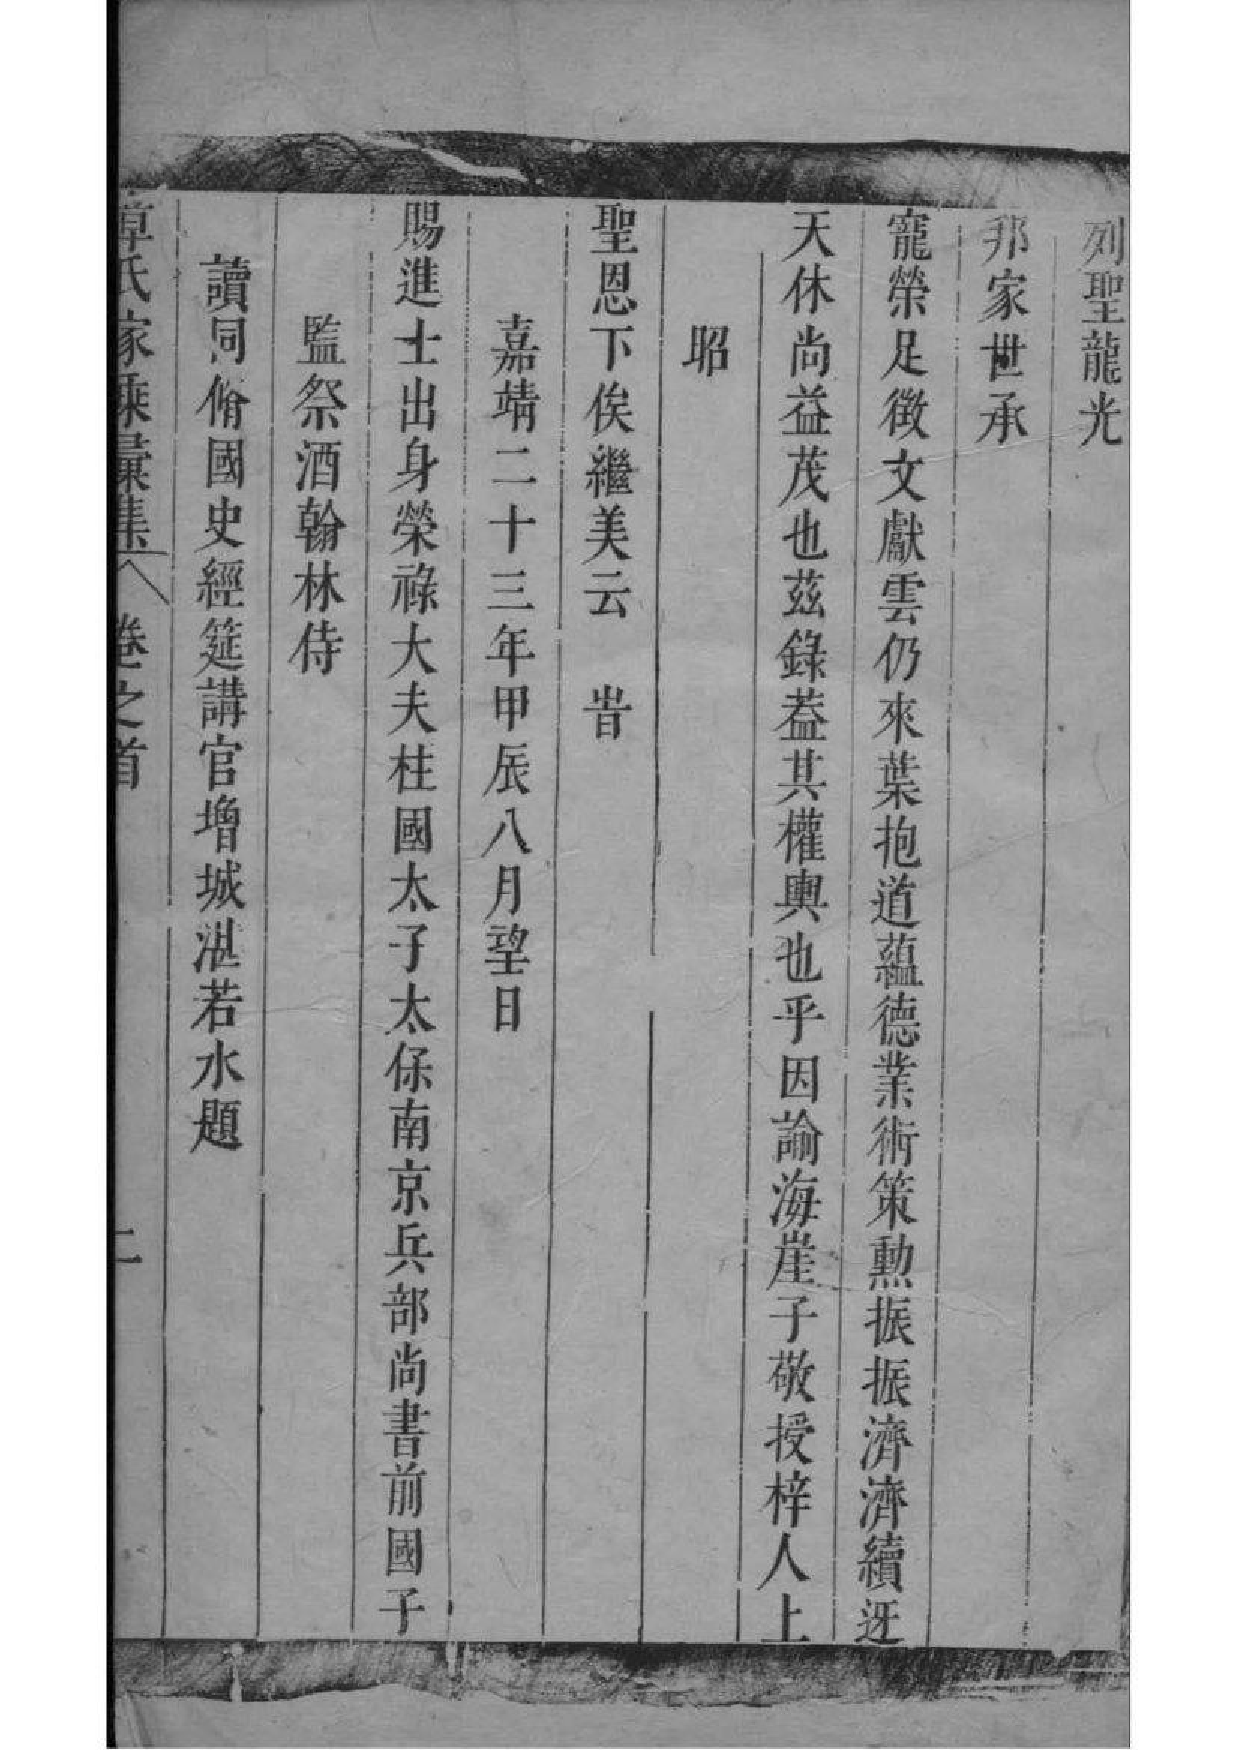 列聖龍光
邦家世承
寵榮足徵文獻雲仍來葉抱道蘊德業術策勳振振濟濟續迓
天休尚益茂也茲錄葢其權輿也乎因諭海崖子敬授梓人上
昭
聖恩下俟繼美云　旹
嘉靖二十三年甲辰八月望日
賜進士出身榮祿大夫柱國太子太保南京兵部尚書前國子
監祭酒翰林侍
讀同脩國史經筵講官增城湛若水題
氏家乘彙集　卷之首　二